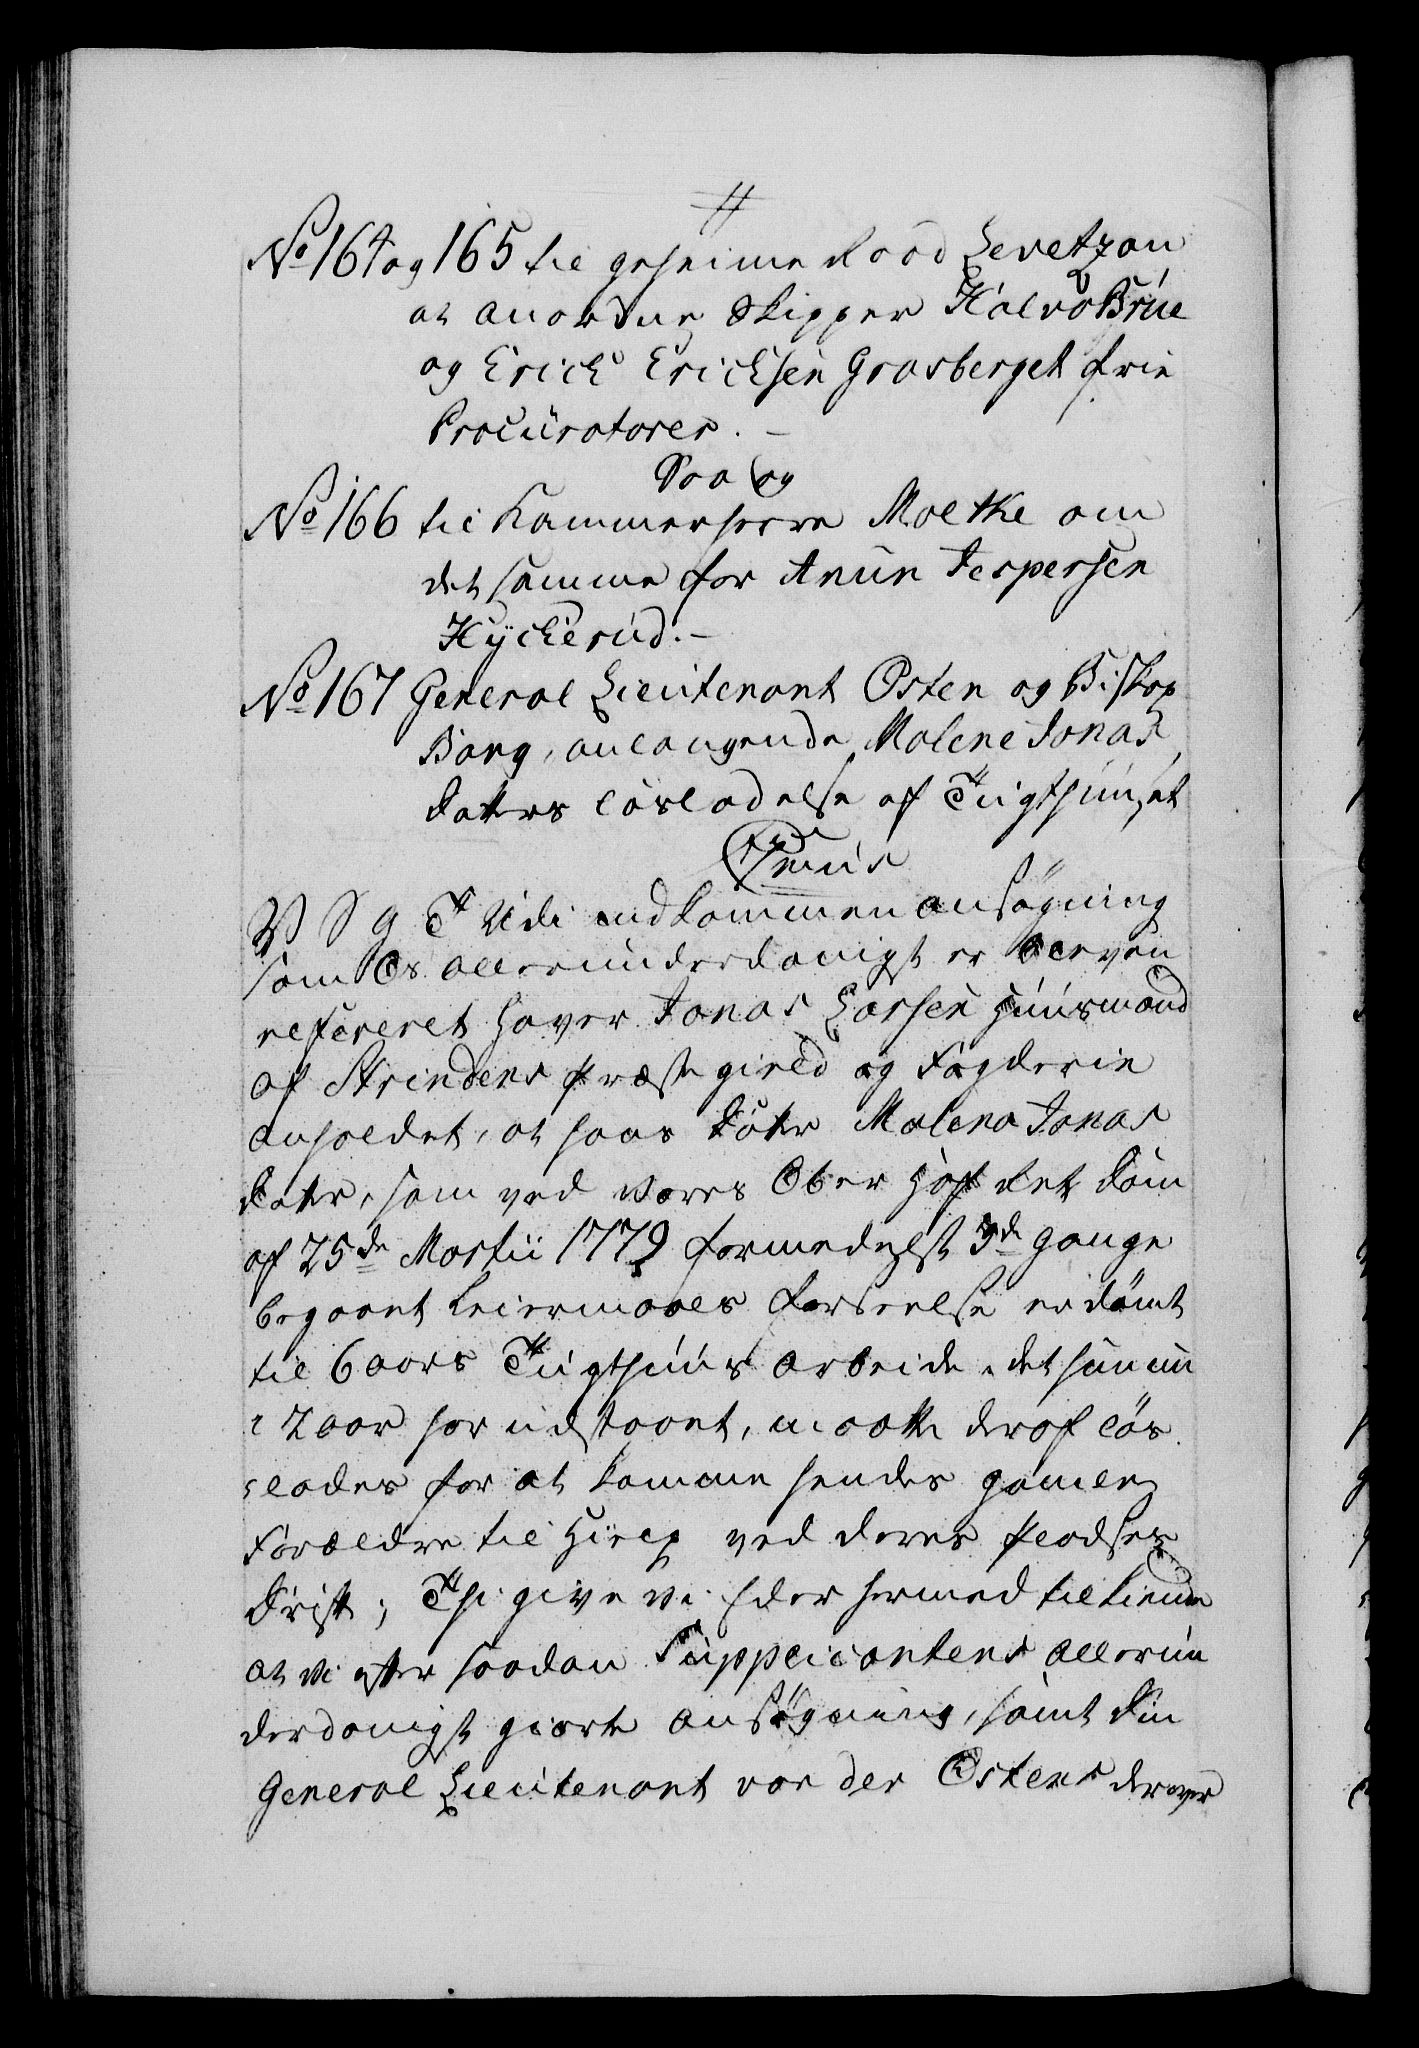 No 164 og 165 til geheime Raad Levetzau
at anordne Skipper Halvo Brüe
og Erich Erichsen Grasberget frie
Procuratorer. –
Saa og
No 166 til Kammerherre Moltke om
det samme for Anun Jespersen
Hÿckerud. –
No 167 General Lieutenant Osten og Biskop
Bang, anlangende Malene Jonas
datters lösladelse af Tugthuuset
C7mus
V S G T Udi indkommen ansøgning
som Os allerunderdanigst er bleven
refereret haver Jonas Larsen Huusmand
af Strindens præstegield og Fogderie
anholdet, at hans datter Malena Jonas
datter, som ved vores Ober Hof Ret dom
af 25de Martii 1779 formedelst 3de gange
begaaet Leiermaals forseelse er dømt
til 6 aars Tugthuus arbeide, det hun nu
i 2 aar har udstaaet, maatte deraf løs
lades for at komme hendes gamle
Forældre til Hielp ved deres pladses
Drift; Thi give vi Eder hermed tilkiende
at vi efter saadan Supplicantens allerun
derdanigst giorte ansøgning, samt din
General Lieutenant von der Ostens derover